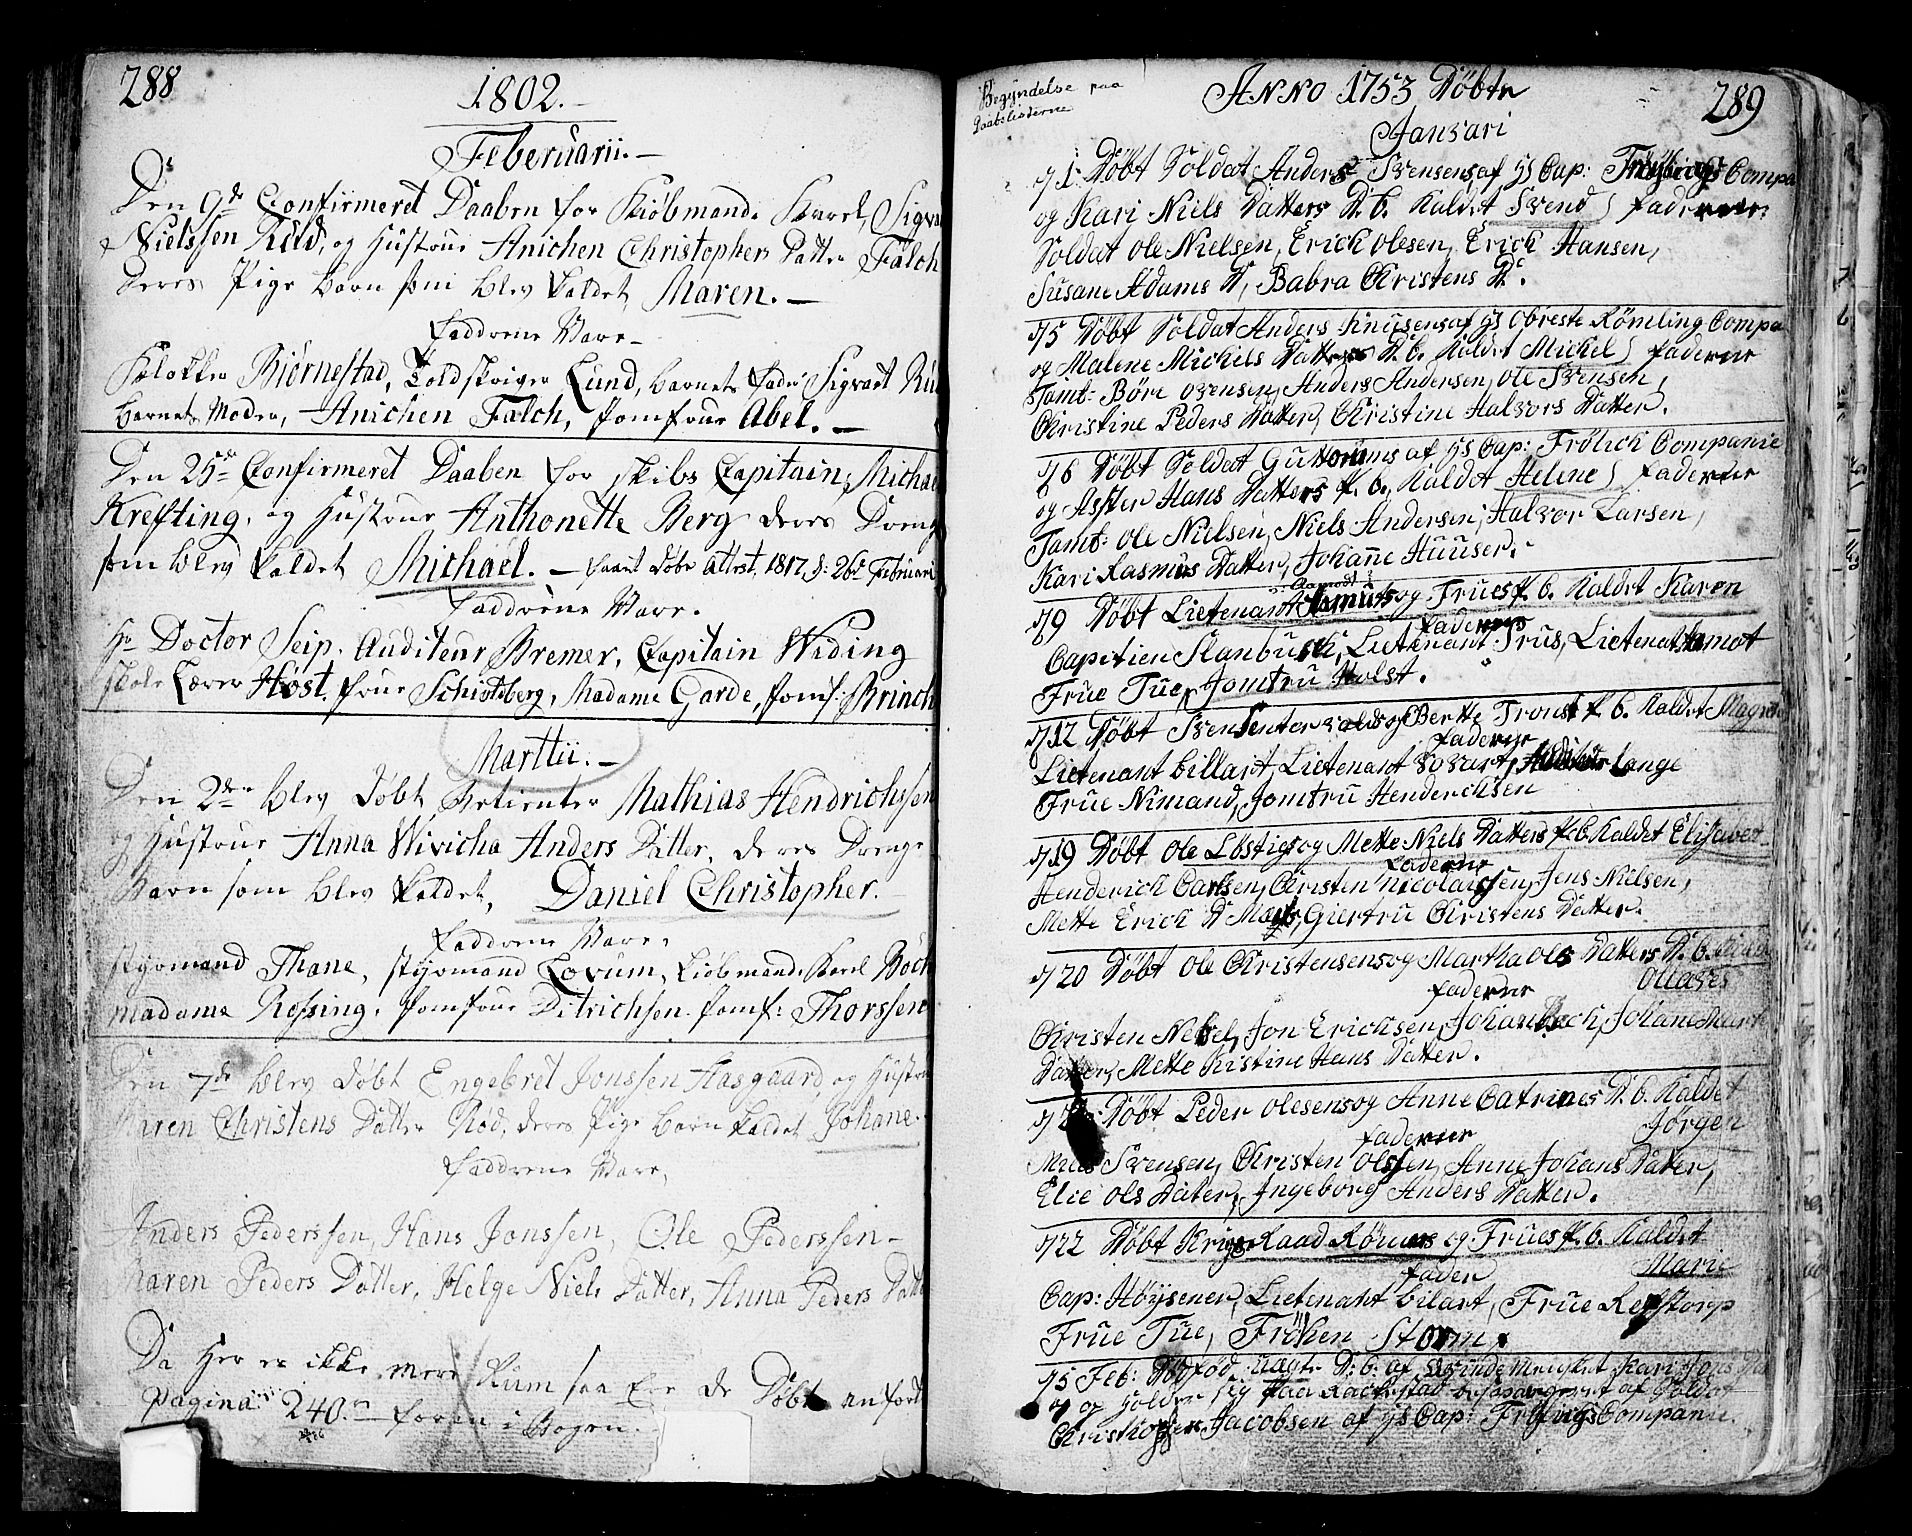 288
1802.
Februarii.
Den 9de Confirmeret Daaben for Kiøbmand Karel, Sigva
Nielssen Ruld, og Hustrue Anichen Christophers Datter Falch
Deres Pige Barn som blev kaldet Maren.
Faddrene Vare
Klokker Biørnestad, Toldskriver Lund, barnets fader Sigvart Rul
barnets Moder, Anichen Falch, Jomfrue Abel.
Den 25de Confirmeret Daaben for skibs Capitain, Michael
Krefting, og Hustrue Anthonette Berg deres Dreng
som blev kaldet Michael. Attest. 1817, d: 26de Februari
Faddrene Vare.
Hr Doctor Seip. Auditeur Bremer, Capitain Widing
skole Lærer Høst, frue Schiøtsberg, Madame Garde, Jomf: Brinch
Martii.
Den 2den blev Døbt Mathias Hendrichssen
og Hustrue Anna Wivicha Anders Datter, deres Drenge
Barn som blev kaldet, Daniel Christopher.
Faddrene Vare,
styrmand Thane, styrmand Lovum, Kiøbmand Karel Boch
madame Rossing, Jomfrue Ditrichsen Jomf: Thorssen
Den 7de blev Døbt Engebret Jonssen Aasgaard, og Hustrue
Maren Christens Datter Rød, deres Pige Barn kaldet Johane.
Faddrene Vare,
Anders Pederssen, Hans Jonssen, Ole Pederssen
Maren Peders Datter, Helge Niels Datter, Anna Peders Datter
Da Her er ikke mere Rum saa Ere de Døbt anført
pagina: 240. foran i Bogen.
289
Begyndelse paa
Daabslisterne
Anno 1753 Døbte
Janvari
1 Døbt Soldat Anders Svensens af Cap: Compa
og Kari Niels Datters D. b. Kaldet Svend) faderne
Soldat Ole Nielsen, Erick Olesen, Erick Hansen,
Susane Adams D, Babra Christens D.
5 Døbt Soldat Anders Knusens af Obreste Römling Compa
og Malene Michils Datters D. b. Kaldet Michel) faderne
Samt: Böre Svensen, Anders Andersen, Ole Svensen,
Christine Peders Datter, Christine Halvors Datter.
6 Døbt Soldat Guttorms af Cap: Frölick Companie
og Asster Hans Datters P. b. Kaldet Helene) faderne
Samt: Ole Nielsen, Niels Andersen, Halvor Larsen,
Kari Rasmus Datter, Johane Huuser.
9 Døbt Lietenant og Frues P. b. Kaldet Karen
faderne
Capitien Stanbusk, Lietenant Trus, Lietenat
Frue Tue, Jomfru Holst.
12 Døbt og Berte Tronst P. b. Kaldet
faderne
Lietenant billart, Lietenant Lange
Frue Nimand, Jomfru Hendericksen
19 Døbt Ole Löstigs og Mette Niels Datters P. b. Kaldet Elisabet
faderne
Henderich Carlsen, Christen Nicolaisen, Jens Nielsen,
Mette Erick D, Giertru Christens Datter.
20 Døbt Ole Christensens og Martha Ols Datters D. b.
faderne
Christen Nebel, Jon Ericksen, Johan Bech, Johane
Datter, Mette Kistine Hans Datter.
Døbt Peder Olesens og Anne Catrines D. b. Kaldet
faderne Jørgen
Svensen, Christen Olssen, Anne Johans Dater,
Elie Ols Dater, Ingeborg Anders Datter.
22 Døbt Krigs Raad og Frues P. b. Kaldet
fader Marie
Cap: Höysener, Lietenant bilart, Frue
Frue Tue, Fröken Storm,
5 Feb: D. b. af Kari
og holder sig paa af Soldat
Jacobsen af Cap: Compani.